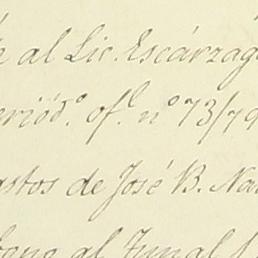 al Lic. Escárzag
eriód.º of.l nº 73/79
astos de José B. Na
al Junal